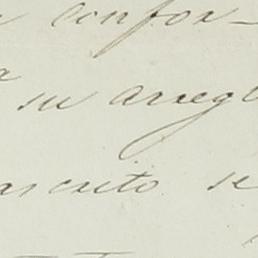 confor-
su arregl
ascrito se